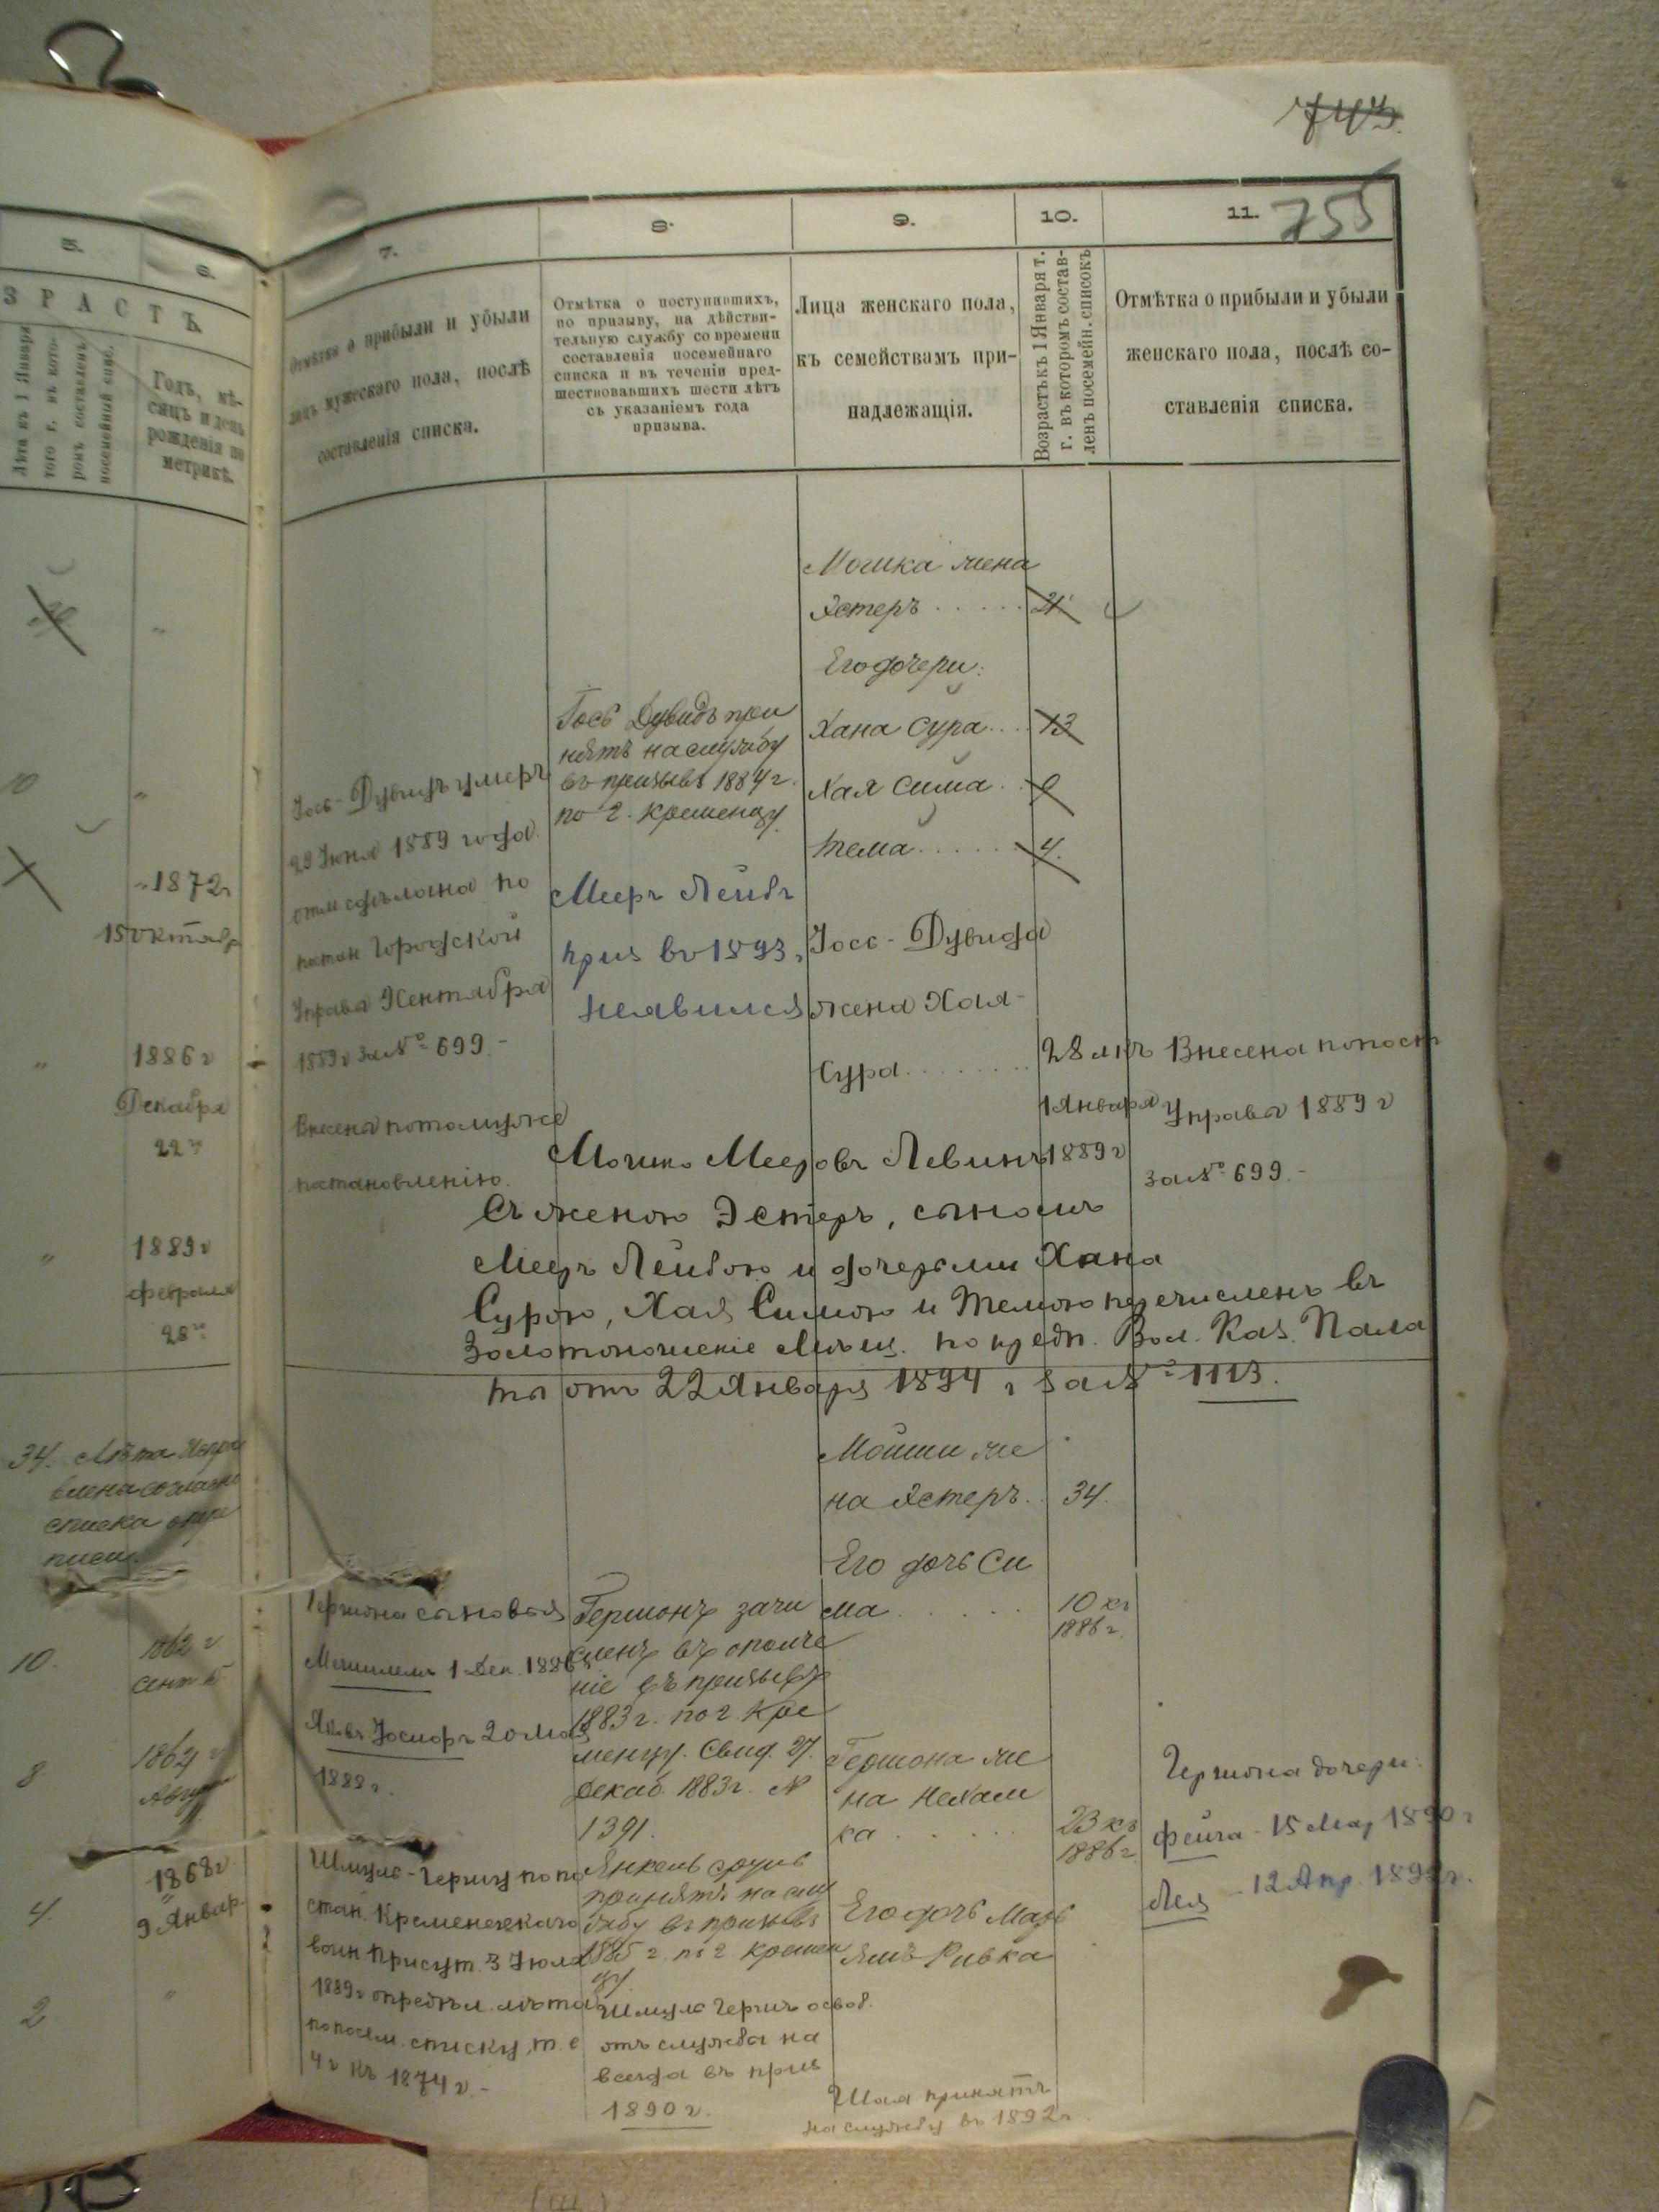 743.
755
5.
6.
7.
8.
9.
10.
11.
ЗРАСТЪ.
Лѣта къ 1 Января
того г. въ кото-
ромъ составленъ
посемейный спис.
Годъ, мѣ-
сяцъ и день
рожденія по
метрикѣ.
Отмѣтка о прибыли и убыли
лицъ мужескаго пола, послѣ
составленія списка.
Отмѣтка о поступившихъ,
по призыву, на дѣйстви-
тельную службу со времени
составленія посемейнаго
списка и въ теченіи пред-
шествовавшихъ шести лѣтъ
съ указаніемъ года
призыва.
Лица женскаго пола,
къ семействамъ при-
надлежащія.
Возрастъ къ 1 Января т.
г. въ которомъ состав-
ленъ посемейн. списокъ
Отмѣтка о прибыли и убыли
женскаго пола, послѣ со-
ставленія списка.
10
" 1872 г
15 октября
" 1886 г
Декабря
22 го
" 1889 г
февраля
28 го
Іось-Дувидъ умеръ
29 Іюня 1889 года
отм сдѣлана по
Городской
Управы Сентября
1889 г за № 699.-
Внесена потомуже
постановленію.
Іось Дувидъ при
нятъ на службу
въ призывѣ 1884 г.
по г. Кременцу.
Меер Лейбъ
приз въ 1893,
неявился
Мошка жена
Эстеръ . . . . . 21
Его дочери:
Хана Сура . . . 13
Хая Сима . . 9
Тема . . . . . 4.
Іосс-Дувида
жена Хая-
Сура . . . . . . . . 28 лѣтъ
1 Января
1889 г
Внесена по пост
Управы 1889 г
за № 699.-
Мошко Мееровъ Левинъ
съ женою Эстеръ, сыномъ
Меер Лейбою и дочерьми Хана
Сурою, Хая Симою и Темою перечисленъ въ
Мѣщ. по предп. Вол. Каз. Пала
ты отъ 22 Января 1894 г за № 1113.
34. Лѣта испра
влена согласно
списка
10. 1862 г
Сент
8 1864 г
Авгу
4. 1868 г
9 Январ.
2 "
Гершона сыновья
1 Дек. 1886
20 Мая
1888 г.
Шмуль-Герш по по
стан. Кременецкаго
воин. Присут. 3 Іюля
1889 г опредѣл. лѣта
по посем. списку, т. е
4 г къ 1874 г.-
Гершонъ зачи
сленъ въ ополче
ніе въ призывѣ
1883 г. по г. Кре
менцу. Свид. 27.
Декаб. 1883 г. №
1391.
Янкель Сруль
принятъ на слу
жбу въ призывѣ
1885 г. по г. Кремен
цу.
Шмуль Гершъ освоб.
отъ службы на
всегда въ приз
1890 г.
Мошки же
на Эстеръ . . 34.
Его дочь Си
ма . . . . . 10 къ
1886 г.
Гершона же
на Нехам
ка . . . . . 23 къ
1886 г.
Его дочь Марь
ямъ Ривка
Шая принятъ
на службу въ 1892 г.
Гершона дочери:
Фейга - 15 Мар 1890 г
Лея - 12 Апр. 1892 г.